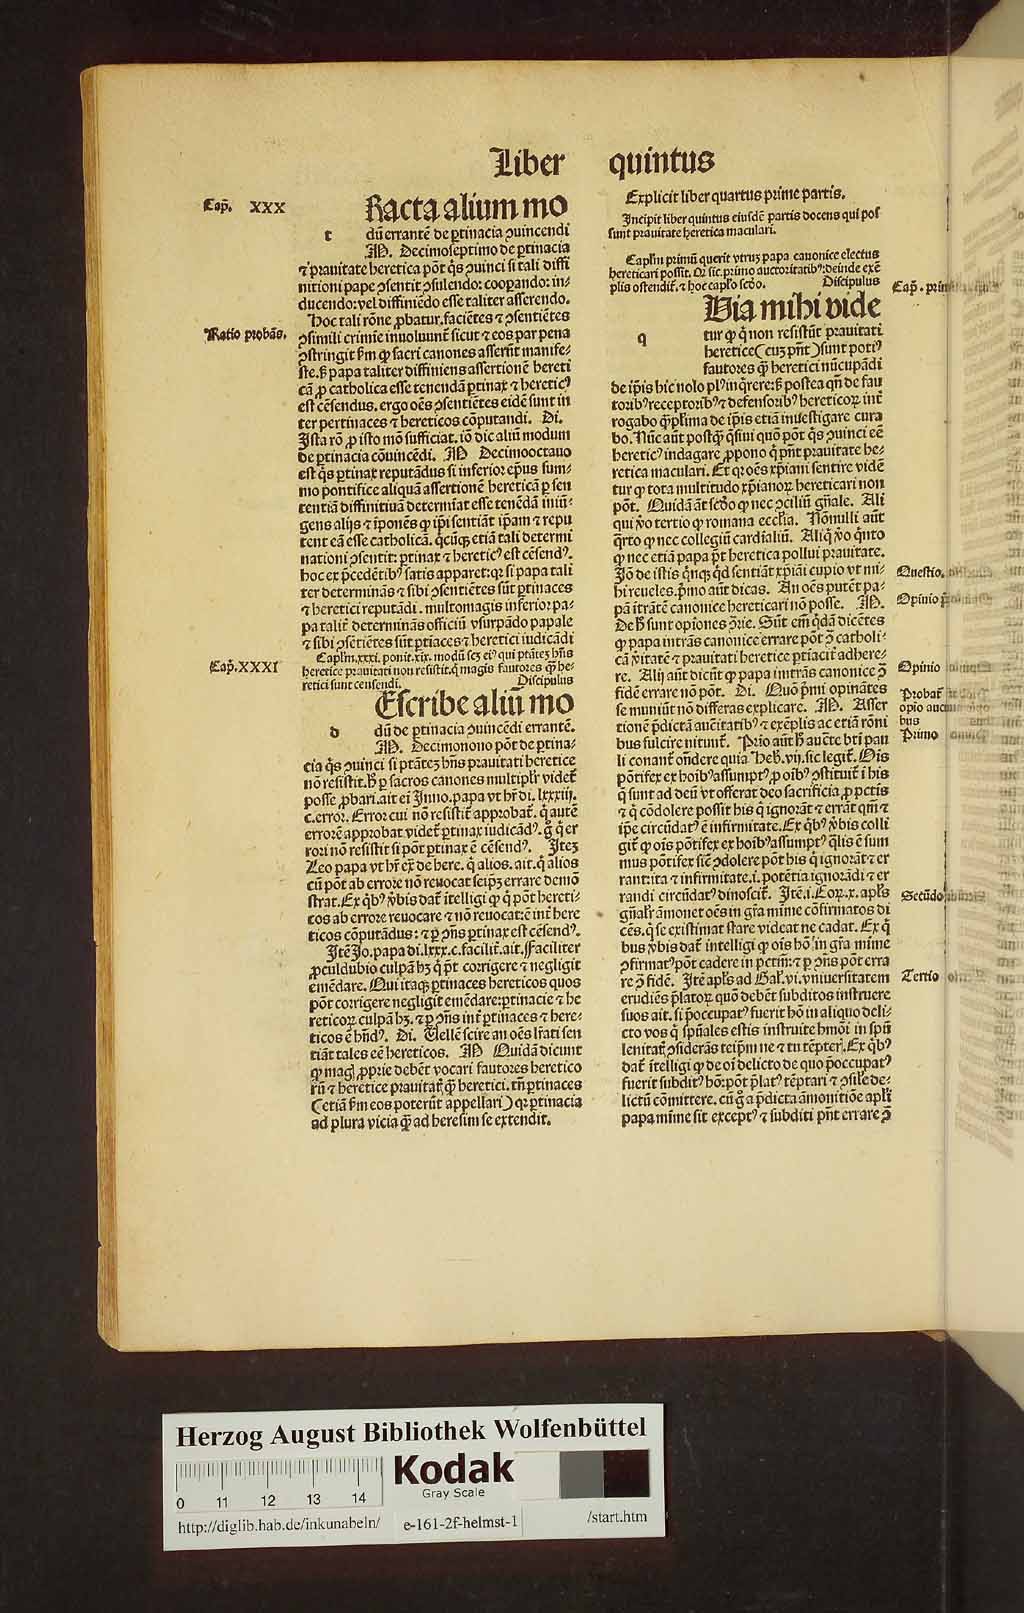 Liber quintus
Cap̄. XXX
t
Racta alium mo
dū errantē de ꝑtinacia ꝯuincendi
M. Decimoseptimo de ꝑtinacia
⁊ prauitate heretica pōt q̄s ꝯuinci si tali diffi
nitioni pape ꝯsentit ꝯsulendo: coopando: in-
ducendo: vel diffiniēdo esse taliter asserendo.
Ratio probās.
Hoc tali rōne ꝓbatur. faciētes ⁊ ꝯsentiētes
ꝯsimili crimie inuoluunt̄ sicut ⁊ eos par pena
ꝯstringit ẜm ꝙ sacri canones asserūt manife-
ste. ẞ papa taliter diffiniens assertionē hereti
cā ꝓ catholica esse tenendā ꝑtinax ⁊ heretic⁹
est cēsendus. ergo oēs ꝯsentiētes eidē sunt in
ter pertinaces ⁊ hereticos cōputandi. Di.
Ista rō ꝓ isto mō sufficiat. iō dic aliū modum
de ꝑtinacia cōuincēdi. M Decimooctauo
est q̄s ꝑtinax reputādus si inferior ep̄us sum-
mo pontifice aliquā assertionē hereticā ꝑ sen
tentiā diffinitiuā determīat esse tenēdā iniū-
gens alijs ⁊ īponēs ꝙ ip̄i sentiāt ip̄am ⁊ repu
tent eā esse catholicā. q̄cūqꝫ etiā tali determi
nationi ꝯsentit: ꝑtinax ⁊ heretic⁹ est cēsend⁹.
hoc ex p̄cedētib⁹ satis apparet: qꝛ si papa tali
ter determinās ⁊ sibi ꝯsentiētes sūt ꝑtinaces
⁊ heretici reputādi. multomagis inferior pa-
pa talit̄ determināns officiū vsurpādo papale
⁊ sibi ꝯsētiētes sūt ꝑtiaces ⁊ heretici iudicādi
Cap̄. XXXI
Caplm̄.xxxi. ponit.xix. modū scꝫ ei⁹ qui ptātēꝫ hn̄s
heretice prauitati non resistit. q̄ magis fautores q̄ꝫ he-
retici sunt censendi. Discipulus
d
Escribe aliū mo
dū de ꝑtinacia ꝯuincēdi errantē.
M. Decimonono pōt de ꝑtina-
cia q̄s ꝯuinci si ptātēꝫ hn̄s prauitati heretice
nō resistit. h̄ ꝑ sacros canones multiplr̄ videt̄
posse ꝓbari. ait ei Inno. papa vt hr̄ di. lxxxiij.
c. error. Error cui nō resistit̄ approbat̄. q̄ autē
errorē approbat videt̄ ꝑtinax iudicād⁹. ḡ q̄ er
rori nō resistit si pōt ꝑtinax ē cēsend⁹. Iteꝫ
Leo papa vt hr̄ ex̄ de here. q̄ alios. ait. q̄ alios
cū pōt ab errore nō reuocat seip̄ꝫ errare demō
strat. Ex q̄b⁹ v̄bis dat̄ ītelligi ꝙ q̄ pōt hereti-
cos ab errore reuocare ⁊ nō reuocat: ē int̄ here
ticos cōputādus: ⁊ ꝑ ꝯn̄s ꝑtinax est cēsend⁹.
Itē Jo. papa di. lxxx. c. facilit̄. ait. Faciliter
ꝓculdubio culpā hꝫ q̄ p̄t corrigere ⁊ negligit
emēdare. Qui itaqꝫ ꝑtinaces hereticos quos
pōt corrigere negligit emēdare: ꝑtinacie ⁊ he
reticoꝝ culpā hꝫ. ⁊ ꝑ ꝯn̄s int̄ ꝑtinaces ⁊ here-
ticos ē hn̄d⁹. Di. Uellē scire an oēs lr̄ati sen
tiāt tales eē hereticos. M Quidā dicunt
ꝙ magꝭ ꝓprie debēt vocari fautores heretico
rū ⁊ heretice prauitat̄ q̄ꝫ heretici. tn̄ ꝑtinaces
(etiā ẜm eos poterūt appellari) qꝛ ꝑtinacia
ad plura vicia q̄ꝫ ad heresim se extendit.
Explicit liber quartus prime partis.
Incipit liber quintus eiusdē partis docens qui pos
sunt prauitate heretica maculari.
Caplm̄ primū querit vtrūꝫ papa canonice electus
hereticari possit. Qꝛ sic. primo auctoritatib⁹: deinde exē
plis ostendit̄. ⁊ hoc caplo scd̄o. Discipulus
q
Via mihi vide
tur ꝙ q̄ non resistūt prauitati
heretice (cuꝫ pn̄t) sunt poti⁹
fautores q̄ꝫ heretici nūcupādi
de ip̄is hic nolo pl⁹ inq̄rere: ẞ postea qn̄ de fau
torib⁹ receptorib⁹ ⁊ defensorib⁹ hereticoꝝ int̄
rogabo q̄ꝫplima de ip̄is etiā inuestigare cura
bo. Nūc aūt postꝗ̄ q̄siui quō pōt q̄s ꝯuinci eē
heretic⁹ indagare ꝓpono q̄ pn̄t prauitate he-
retica maculari. Et qꝛ oēs xp̄iani sentire vidē
tur ꝙ tota multitudo xp̄ianoꝝ hereticari non
pōt. Quidā āt scd̄o ꝙ nec ꝯciliū gn̄ale. Ali
qui v̄o tertio ꝙ romana eccl̄ia. Nōnulli aūt
q̄rto ꝙ nec collegiū cardīaliū. Aliq̄ v̄o q̄nto
ꝙ nec etiā papa p̄t heretica pollui prauitate.
Iō de istis q̄nqꝫ q̄d sentiāt xp̄iāi cupio vt mi-
hi reueles. p̄mo aūt dicas. An oēs putēt pa-
pā ītrātē canonice hereticari nō posse. M.
De h̄ sunt opiones ꝯ̄rie. Sūt em̄ q̄dā dicētes
ꝙ papa intrās canonice errare pōt ꝯ̄ catholi-
cā v̄itatē ⁊ prauitati heretice ꝑtiacit̄ adhere-
re. Alij aūt dicūt ꝙ papa intrās canonice ꝯ̄
fidē errare nō pōt. Di. Quō p̄mi opinātes
se muniūt nō differas explicare. M. Asser
tionē p̄dictā auc̄titatib⁹ ⁊ exēplis ac etiā rōni
bus fulcire nitunt̄. Prio aūt h̄ auc̄te bt̄i pau
li conant̄ on̄dere quia Heb̄. vij. sic legit̄. Ois
pōtifex ex hoib⁹ assumpt⁹ ꝓ oib⁹ ꝯstituit̄ ī his
q̄ sunt ad deū vt offerat deo sacrificia ꝓ pctīs
⁊ q̄ cōdolere possit his q̄ ignorāt ⁊ errāt qm̄ ⁊
ip̄e circūdat⁹ ē infirmitate. Ex q̄b⁹ v̄bis colli
git̄ ꝙ ois pōtifex ex hoib⁹ assumpt⁹ q̄lis ē sum
mus pōtifex sic̄ ꝯdolere pōt his q̄ ignorāt ⁊ er
rant: ita ⁊ infirmitate. i. potētia ignorādi ⁊ er
randi circūdat⁹ dinoscit̄. Itē. i. Coꝝ. x. apl̄s
gn̄alr̄ āmonet oēs in gr̄a mīme cōfirmatos di
cēs. q̄ se existimat stare videat ne cadat. Ex q̄
bus v̄bis dat̄ intelligi ꝙ ois hō in gr̄a mīme
ꝯfirmat⁹ pōt cadere in pctm̄: ⁊ ꝑ ꝯn̄s pōt erra
re ꝯ̄ fidē. Itē apl̄s ad Gal̄. vi. vniuersitatem
erudiēs p̄latoꝝ quō debēt subditos instruere
suos ait. si p̄occupat⁹ fuerit hō in aliquo deli-
cto vos q̄ spūales estis instruite hmōi in spū
lenitat̄ ꝯsiderās teip̄m ne ⁊ tu tēpter̄. Ex q̄b⁹
dat̄ ītelligi ꝙ de oī delicto de quo p̄occupat⁹
fuerit subdit⁹ hō: pōt p̄lat⁹ tēptari ⁊ ꝯsil̄e de-
lictū cōmittere. cū ḡ a p̄dicta āmonitiōe apl̄i
papa mīme sit except⁹ ⁊ subditi pn̄t errare ꝯ̄
Cap̄.
Questio.
Opinio
Opinio
Probat̄
opio
bus
Primo
Secūdo
Tertio
Herzog August Bibliothek Wolfenbüttel
0 11 12 13 14
Kodak
Gray Scale
http://diglib.hab.de/inkunabeln/ e-161-2f-helmst-1 /start.htm